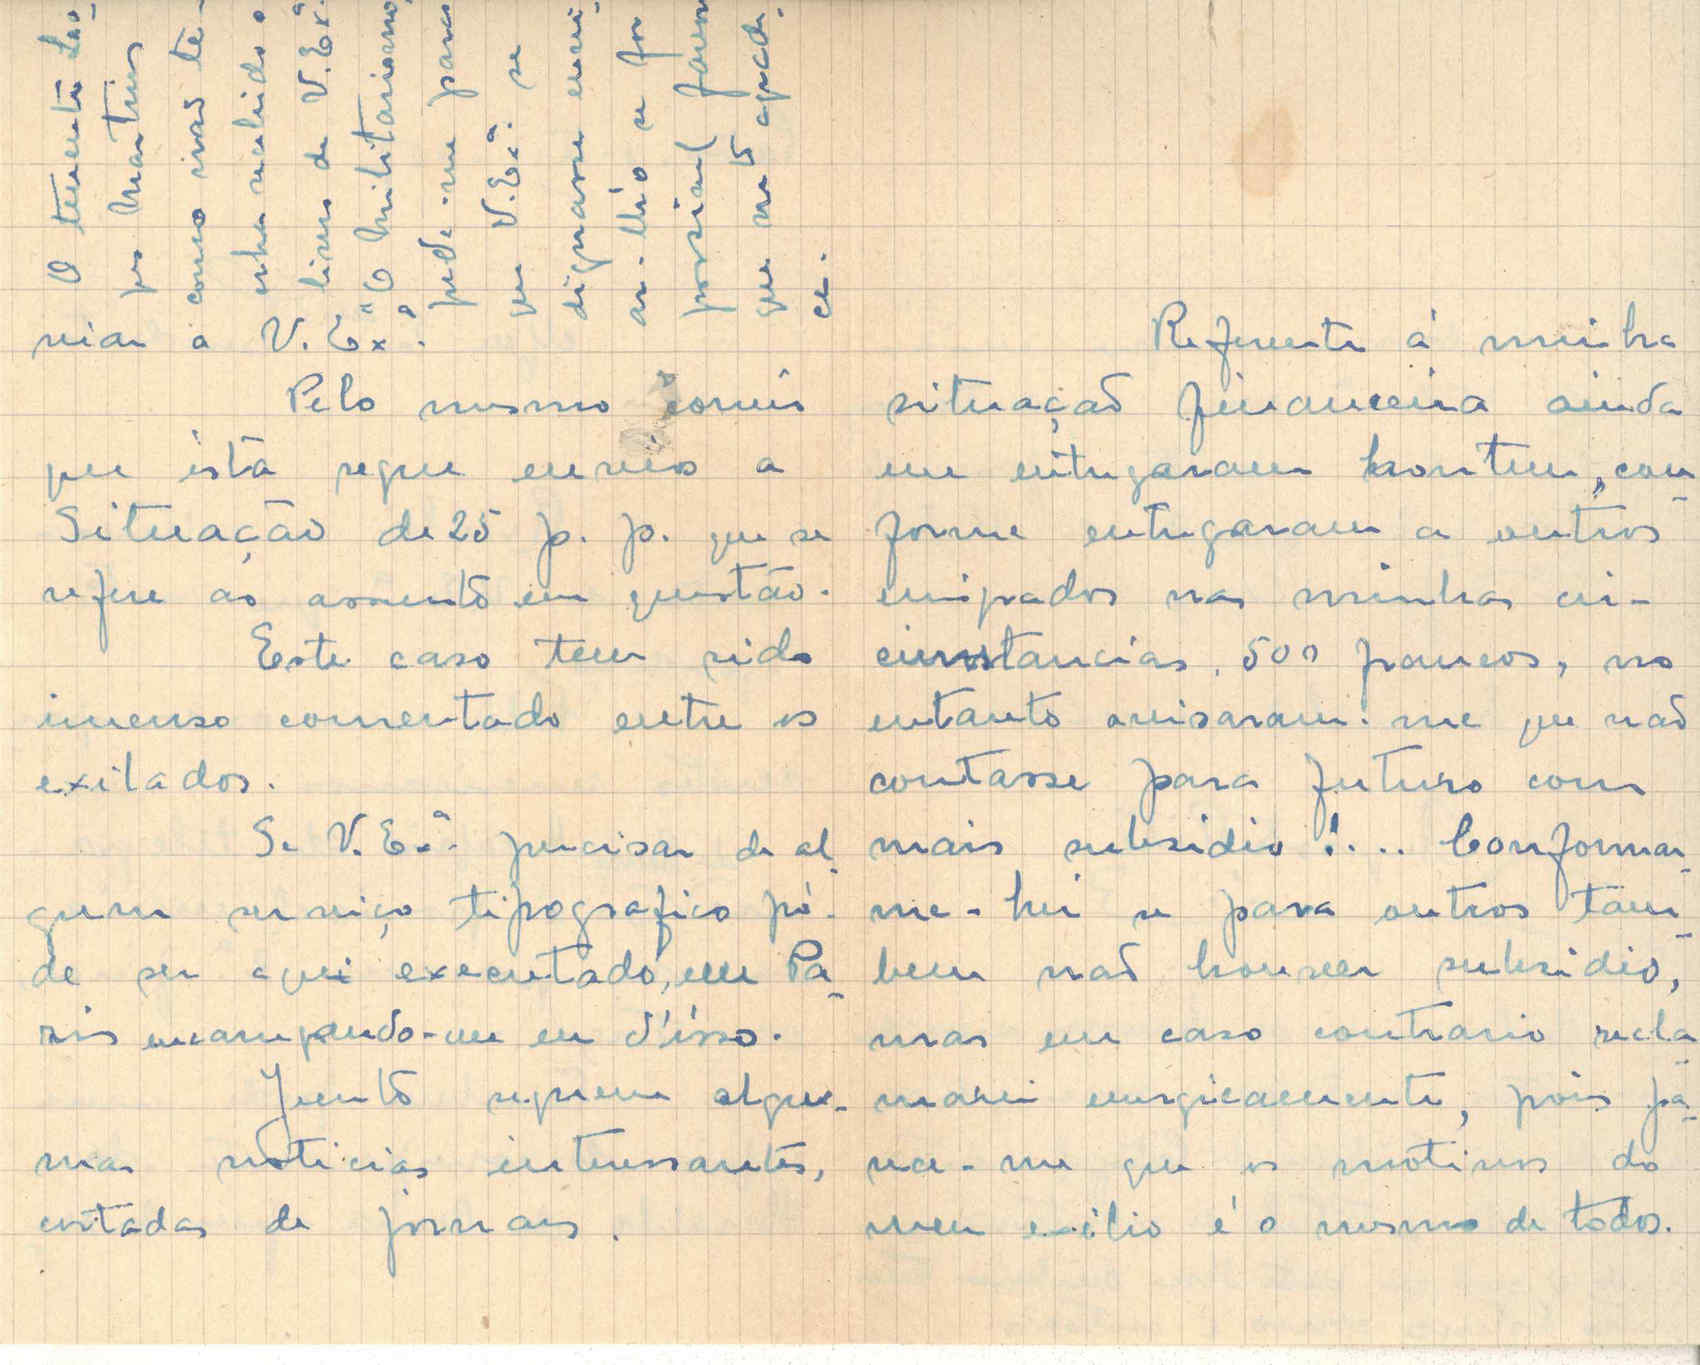 O tenente Lo-
pes Martins
como não te-
nha recebido o
livro de V. Exª.
"O Militarismo,
pede-me para
que V. Exª. se
dignasse enviar-
-lho se for
possivel favor
que muito agrade-
ce.
viar a V. Exª.
Pelo mesmo correio
que ésta segue envio a
Situação de 25 p. p. que se
refere ao assunto em questão.
Este caso tem sido
imenso comentado entre os
exilados.
Se V. Exª. precisar de al-
gum serviço tipografico pó-
de ser aqui executado, em Pa-
ris encarregando-me eu d'isso.
Junto seguem algu-
mas noticias interessantes,
cortadas de jornais.
Referente á minha
situação financeira ainda
me entregaram hontem, con-
forme entregaram a outros
emigrados nas minhas cir-
cunstancias, 500 francos, no
entanto avisaram-me que não
contasse para futuro com
mais subsidio!... Conformar-
me-hei se para outros tam-
bem não houver subsidio,
mas em caso contrario recla-
marei energicamente, pois pa-
rece-me que os motivos do
meu exilio é o mesmo de todos.